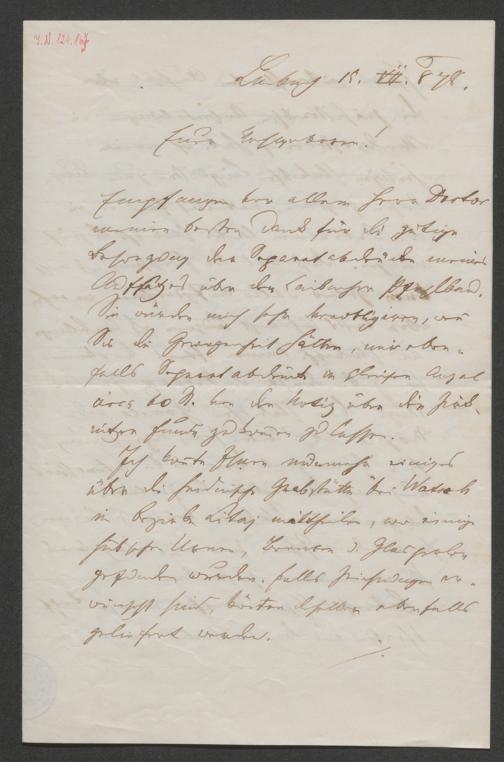 J.N. 124.167
Laibach 15. III. 878.
Euer Hochgeboren!
Empfangen vor allem Herr Doctor
meinen besten Dank für die gütige
Besorgung der Separatabdrücke meines
Aufsatzes über den Laibacher Pfahlbau.
Sie würden mich sehr verpflichten, wenn
Sie die Gewogenheit hätten, mir eben-
falls Separatabdrücke in gleicher Anzal
circa 60 St. von der Notiz über die
Funde zukommen zu lassen.
Ich könnte Ihnen nunmehr einiges
über die heidnische Grabstätte bei Watsch
im Bezirke Littai mittheilen, wo einige
hübsche Urnen, Bronzen u. Glasperlen
gefunden wurden. Falls Zeichnungen er-
wünscht sind, könten dieselben ebenfalls
geliefert werden.